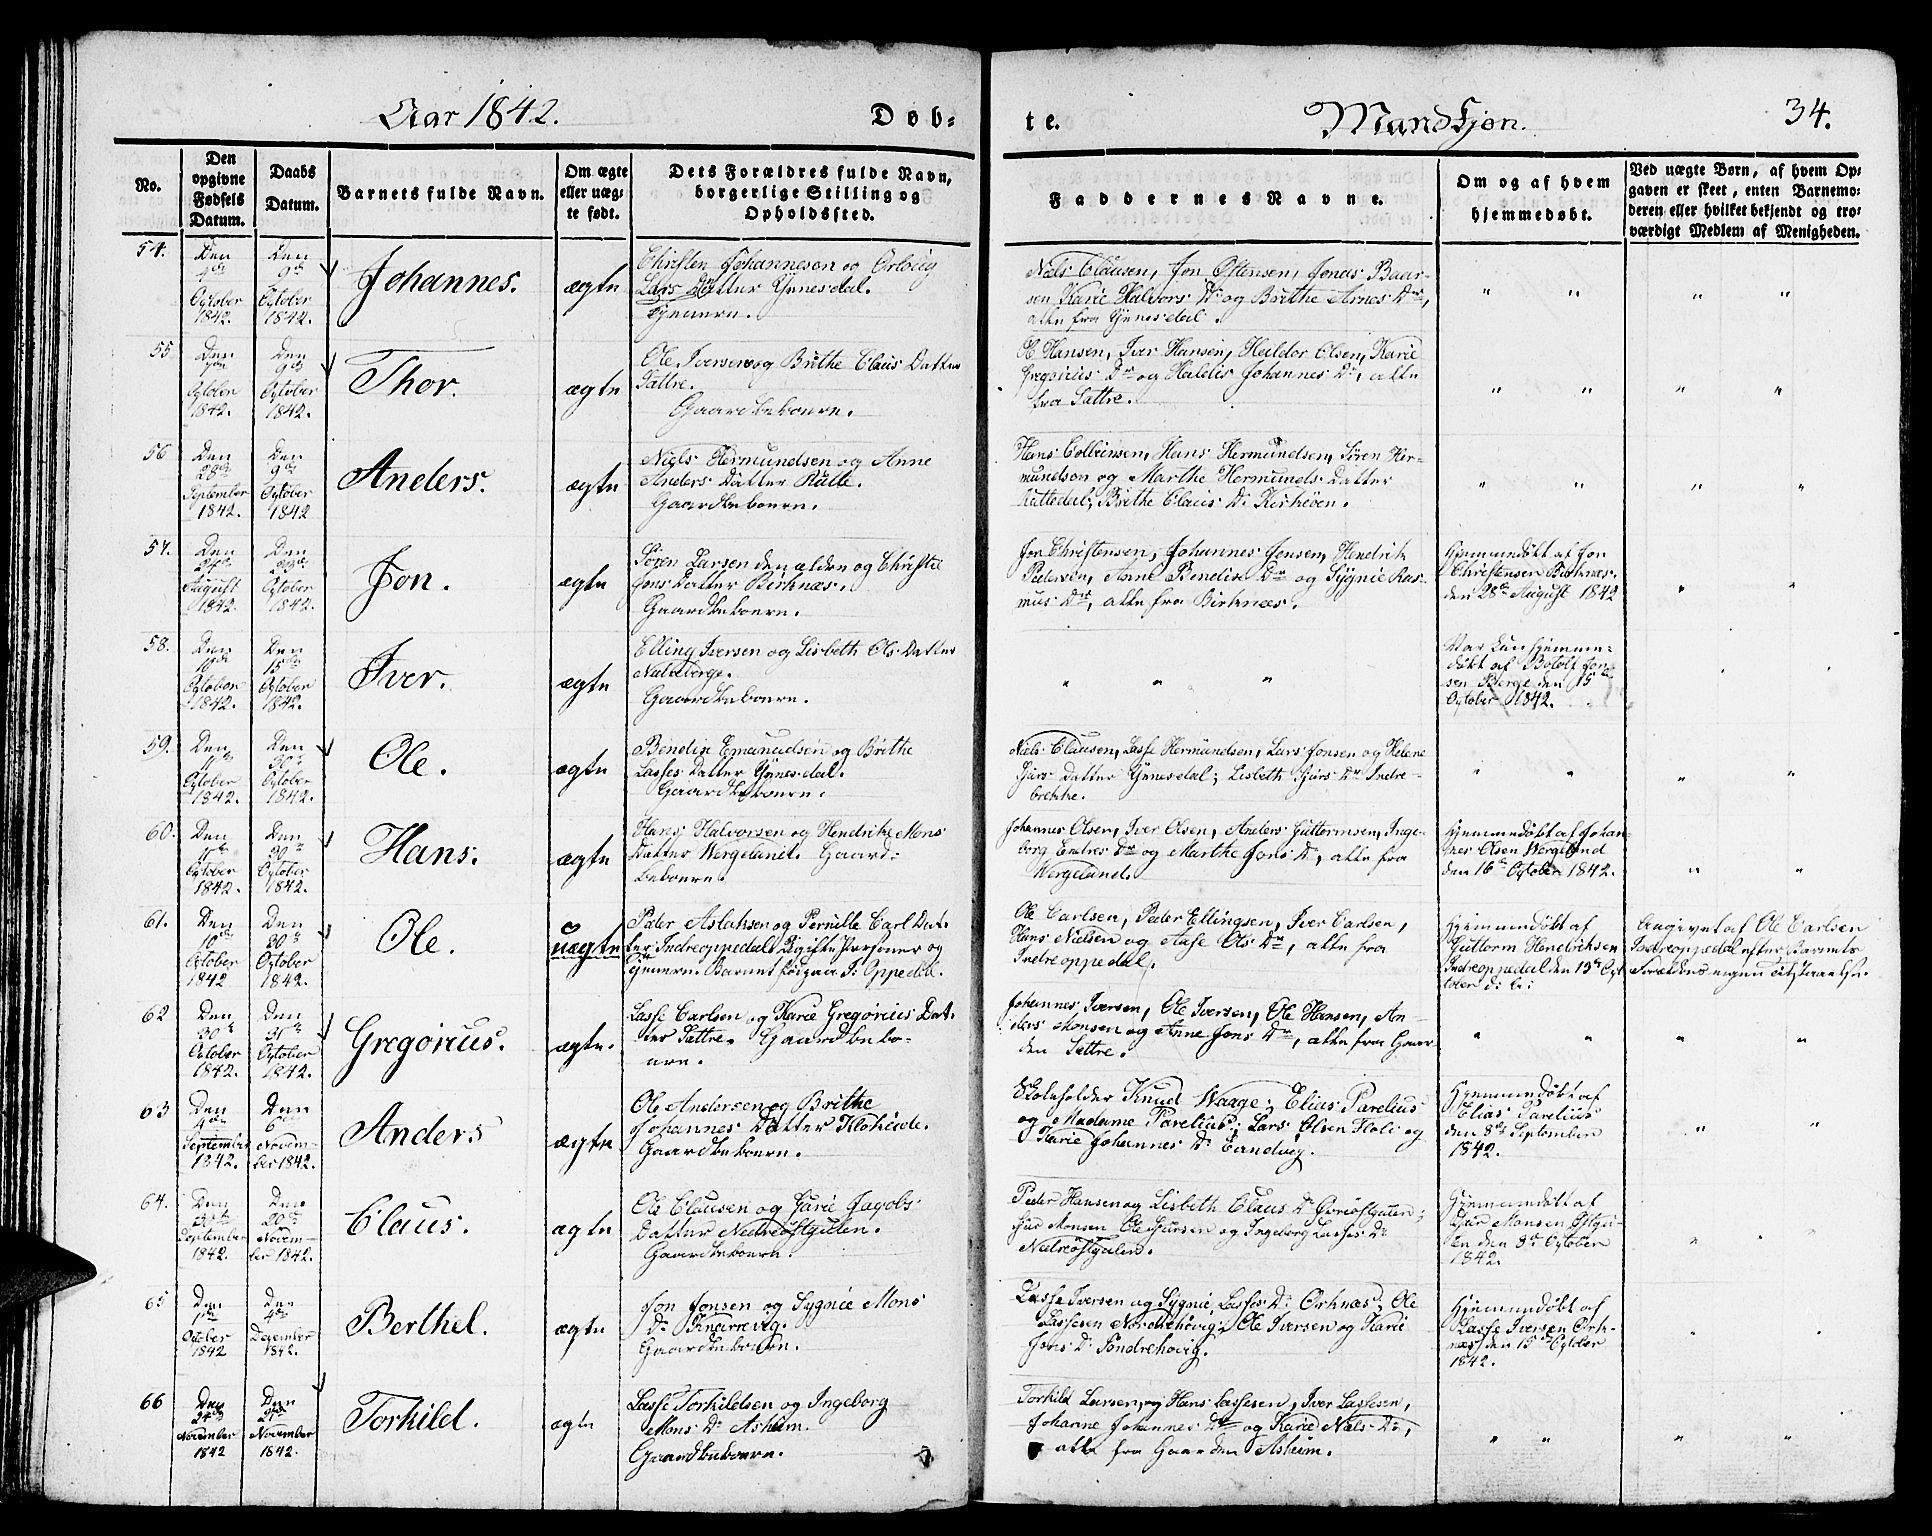 Aar 1842.
Døb-
te.
Mandkjøn.
34.
No.
Den
opgivne
Fødsels
Datum.
Daabs
Datum.
Barnets fulde Navn.
Om ægte
eller uæg-
te født.
Dets Forældres fulde Navn,
borgerlige Stilling og
Opholdssted.
Faddernes Navne.
Om og af hvem
hjemmedøbt.
Ved uægte Børn, af hvem Op-
gaven er skeet, enten Barnemo-
deren eller hvilket bekjendt og tro-
værdigt Medlem af Menigheden.
54.
Den
4de
October
1842.
Den
9de
October
1842.
Johannes.
ægte
Christen Johannesen og
Lars Datter Ynnesdal.
Niels Clausen, Jon Ostensen, Jonas Baar-
sen Karie Halvors Dr og Brithe Arnes Dr,
alle fra Ynnesdal.
" " " "
55
Den
October
1842.
Den
9de
October
1842.
Thor.
ægte
Ole Iversen og Brithe Claus Datter
Sættre.
Gaardbeboere.
Ol Hansen, Iver Hansen, Heldor Olsen, Karie
Gregorius Dr og Haldis Johannes Dr, alle
fra Sættre.
" " " "
56
Den
28de
September
1842.
Den
9de
October
1842
Anders.
ægte
Niels Hermundsen og Anne
Anders Datter Rutle.
Gaardbeboere.
Hans Hans Hermundsen, Søren Her-
mundsen og Marthe Hermunds Datter
Brithe Claus Dr
" " " "
57.
Den
24de
August
1842.
Den
October
1842.
Jon.
ægte
Søren Larsen den ældre og Christi
Jons Datter Birknæs.
Gaardbeboere.
Jon Christensen, Johannes Jonsen, Hendrik
Pedersen, Anne Bendix Dr og Sygnie Ras-
mus Dr, alle fra Birknæs.
Hjemmedøbt af Jon
Christensen Birknæs.
den 28de August 1842
" "
58.
Den
10de
October
1842.
Den
15de
October
1842.
Iver.
ægte
Elling Iversen og Lisbeth Ols Datter
Gaardbeboere.
" " "
Var kun hjemme-
døbt af Botolf Jon-
sen Berge den 15de
October 1842.
59.
Den
11te
October
1842.
Den
30te
October
1842.
Ole.
ægte
Bendix Emanuelsen og Brithe
Lasses Datter Ynnesdal.
Gaardbeboere.
Niels Clausen, Lasse Hermundsen, Lars Jonsen og Helene
Datter Ynnesdal; Lisbeth Dr Indre-
brekke.
" " " "
60.
Den
11te
October
1842.
Den
30te
October
1842.
Hans.
ægte
Hans Halvorsen og Hendrikke Mons
Datter Wergeland. Gaard-
beboere.
Johannes Olsen, Iver Olsen, Anders Guttormsen, Inge-
borg Endres Dr og Marthe Jons Dr, alle fra
Wergeland.
Hjemmedøbt af Johan-
nes Olsen Wergeland
den 16de October 1842.
" "
61.
Den
10de
October
1842
Den
30te
October
1842.
Ole.
uægte
Peder Aslaksen og Pernille Carl Dat-
ter Indreoppedal, Ugifte Personer og
Barnet
Ole Carlsen, Peder Ellingsen, Iver Carlsen,
Hans Nielsen og Aase Ols Dr, alle fra
Indreoppedal.
Hjemmedøbt af
Guttorm Hendriksen
Indreoppedal den 15de Oc-
tober
Angivet af Ole Carlsen
Indreoppedal efter Barnets
Forældres egen
62
Den
30te
October
1842.
Den
31te
October
1842.
Gregorius.
ægte.
Lasse Carlsen og Karie Gregorius Dat-
ter Sættre. Gaardbebo-
ere.
Johannes Iversen, Ole Iversen, Ole Hansen, An-
ders Monsen og Anne Jons Dr, alle fra Gaar-
den Sættre.
" " " "
63
Den
4de
September
1842.
Den
6te
Novem-
ber 1842.
Anders
ægte
Ole Andersen og Brithe
Johannes Datter
Gaardbeboere.
Skoleholder Knud Waage; Elias Parelius
og Madame Parelius; Lars Olsen Floli og
Karie Johannes Dr Eandvig.
Hjemmedøbt af
Elias Parelius
den 8de September
1842.
" "
64.
Den
30te
September
1842.
Den
20de
Novem-
ber 1842.
Claus.
ægte
Ole Clausen og Jacobs
Datter Nedreøstgulen.
Gaardbeboere.
Peder Hansen og Lisbeth Claus Dr Øvreøstgulen;
Monsen Ole og Ingeborg Lasses Dr
Nedreøstgulen.
Hjemmedøbt af
Monsen Østgu-
len den 3de October
1842.
65
Den
October
1842
Den
4de
December
1842.
Berthel.
ægte
Jon Jonsen og Sygnie Mons
Dr
Gaardbeboere.
Lasse Iversen og Sygnie Lasses Dr Orknæs; Ole
Lassesen Nordrehovig; Ole Iversen og Karie
Jons Dr
Hjemmedøbt af
Lasse Iversen Ork-
næs den 15de October
1842.
66
Den
24de
November
1842
Den
November
1842.
Torkild.
ægte
Lasse Torkildsen og Ingeborg
Mons Dr Asheim.
Gaardbeboere.
Torkild Larsen, og Hans Lassesen, Iver Lassesen,
Johanne Johannes Dr og Karie Niels Dr,
alle fra Gaarden Asheim.
" " " "